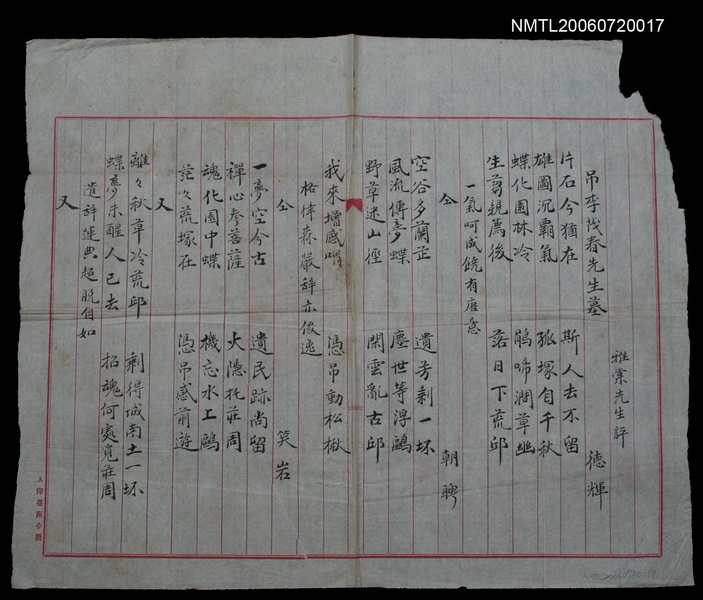 NMTL20060720017
弔李茂春先生墓
雅棠先生評
德輝
片石今猶在 斯人去不留
雄圖沉霸氣 孤塚自千秋
蝶化園林冷 鵑啼澗草幽
生芻親薦後 落日下荒邱
一氣呵成饒有唐意
仝 朝聘
空谷多蘭芷 遺芳剩一坏
風流傳夢蝶 塵世等浮鷗
野草迷山徑 閑雲亂古邱
我來增感喟 憑吊動松楸
格律森嚴辭亦俊逸
仝 笑岩
一夢空今古 遺民跡尚留
禪心參菩薩 大隱托莊周
魂化園中蝶 機忘水上鷗
茫々荒塚在 憑吊感前遊
又
離々秋草冷荒邱 剩得城南土一坏
蝶夢未醒人已去 招魂何處覓莊周
遣辭運典超脫自如
又
NMTL20060720017